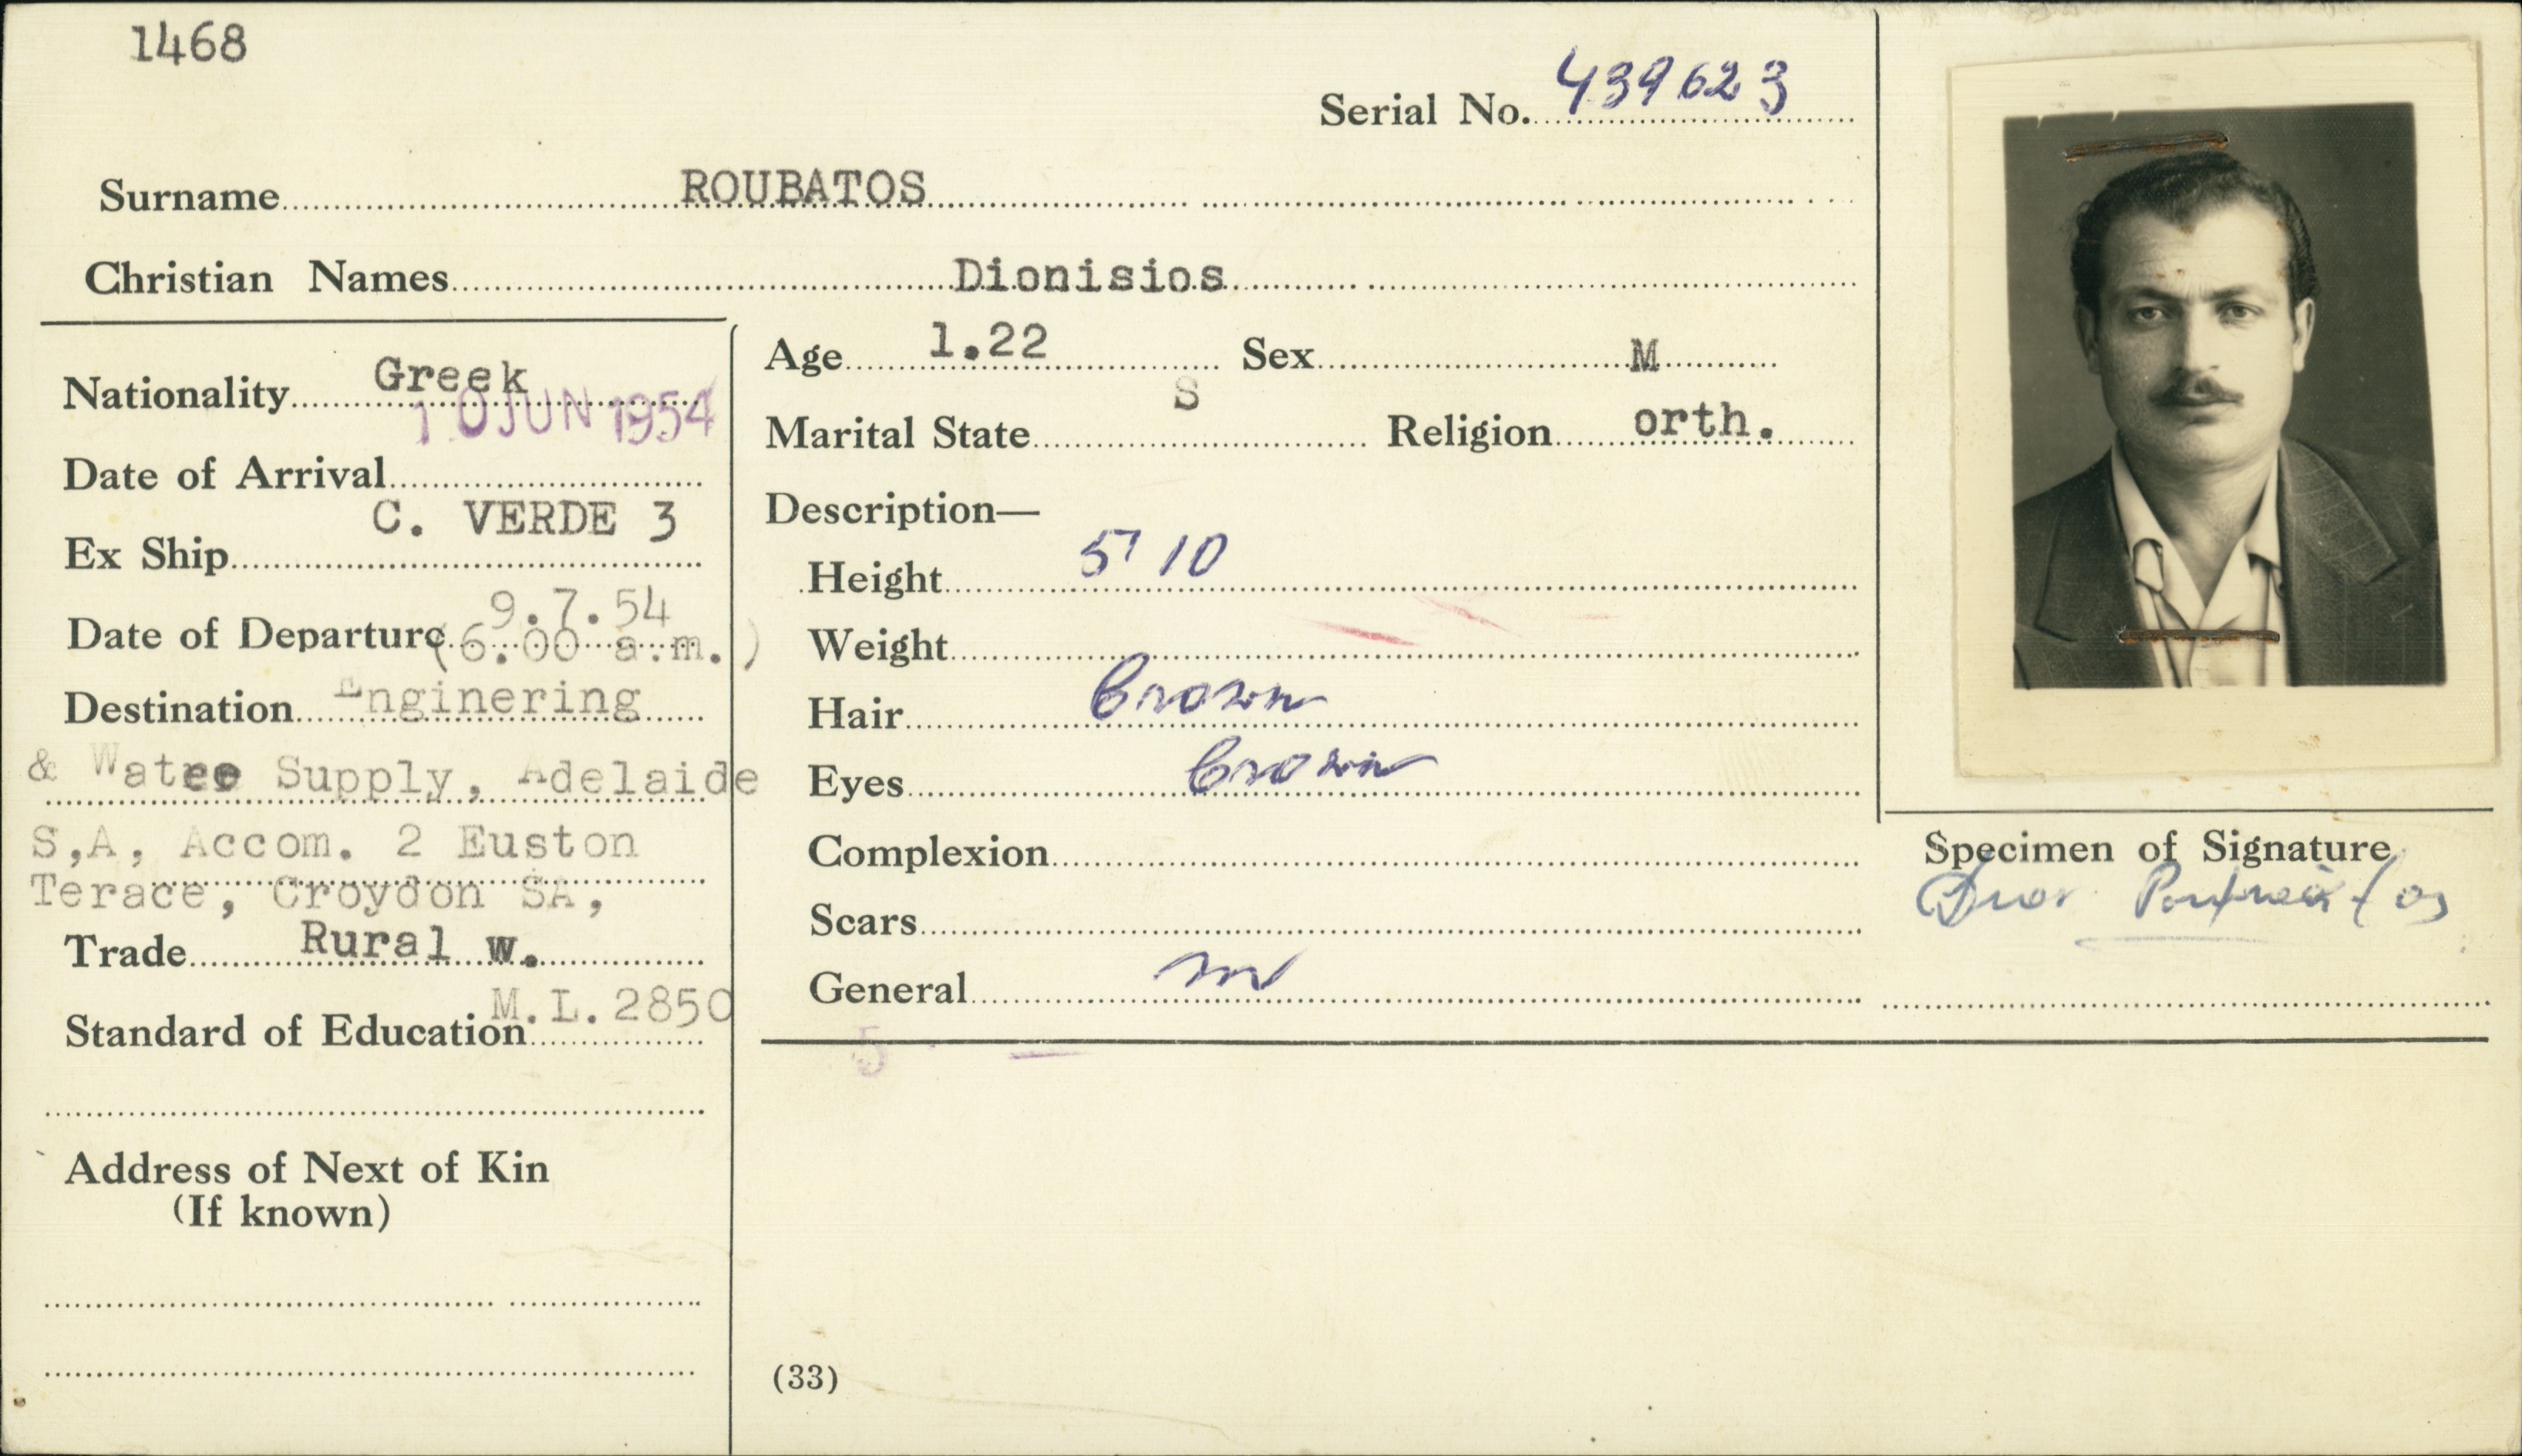 1468
Serial No. 439623
Surname ROUBATOS
Christian Names Dionisios
Nationality Greek
10 JUN 1954
Date of Arrival
Ex Ship C. VERDE 3
Date of Departure 9.7.54
(6.00 a.m.)
Destination Enginering
& Water Supply, Adelaide
S,A, Accom. 2 Euston
Terace, Croydon SA,
Trade Rural w.
Standard of Education M.L.2850
Address of Next of Kin
(If known)
Age 1.22 Sex M
Marital State S Religion orth.
Description—
Height 5' 10
Weight
Hair Brown
Eyes Brown
Complexion
Scars
General
5
(33)
Specimen of Signature